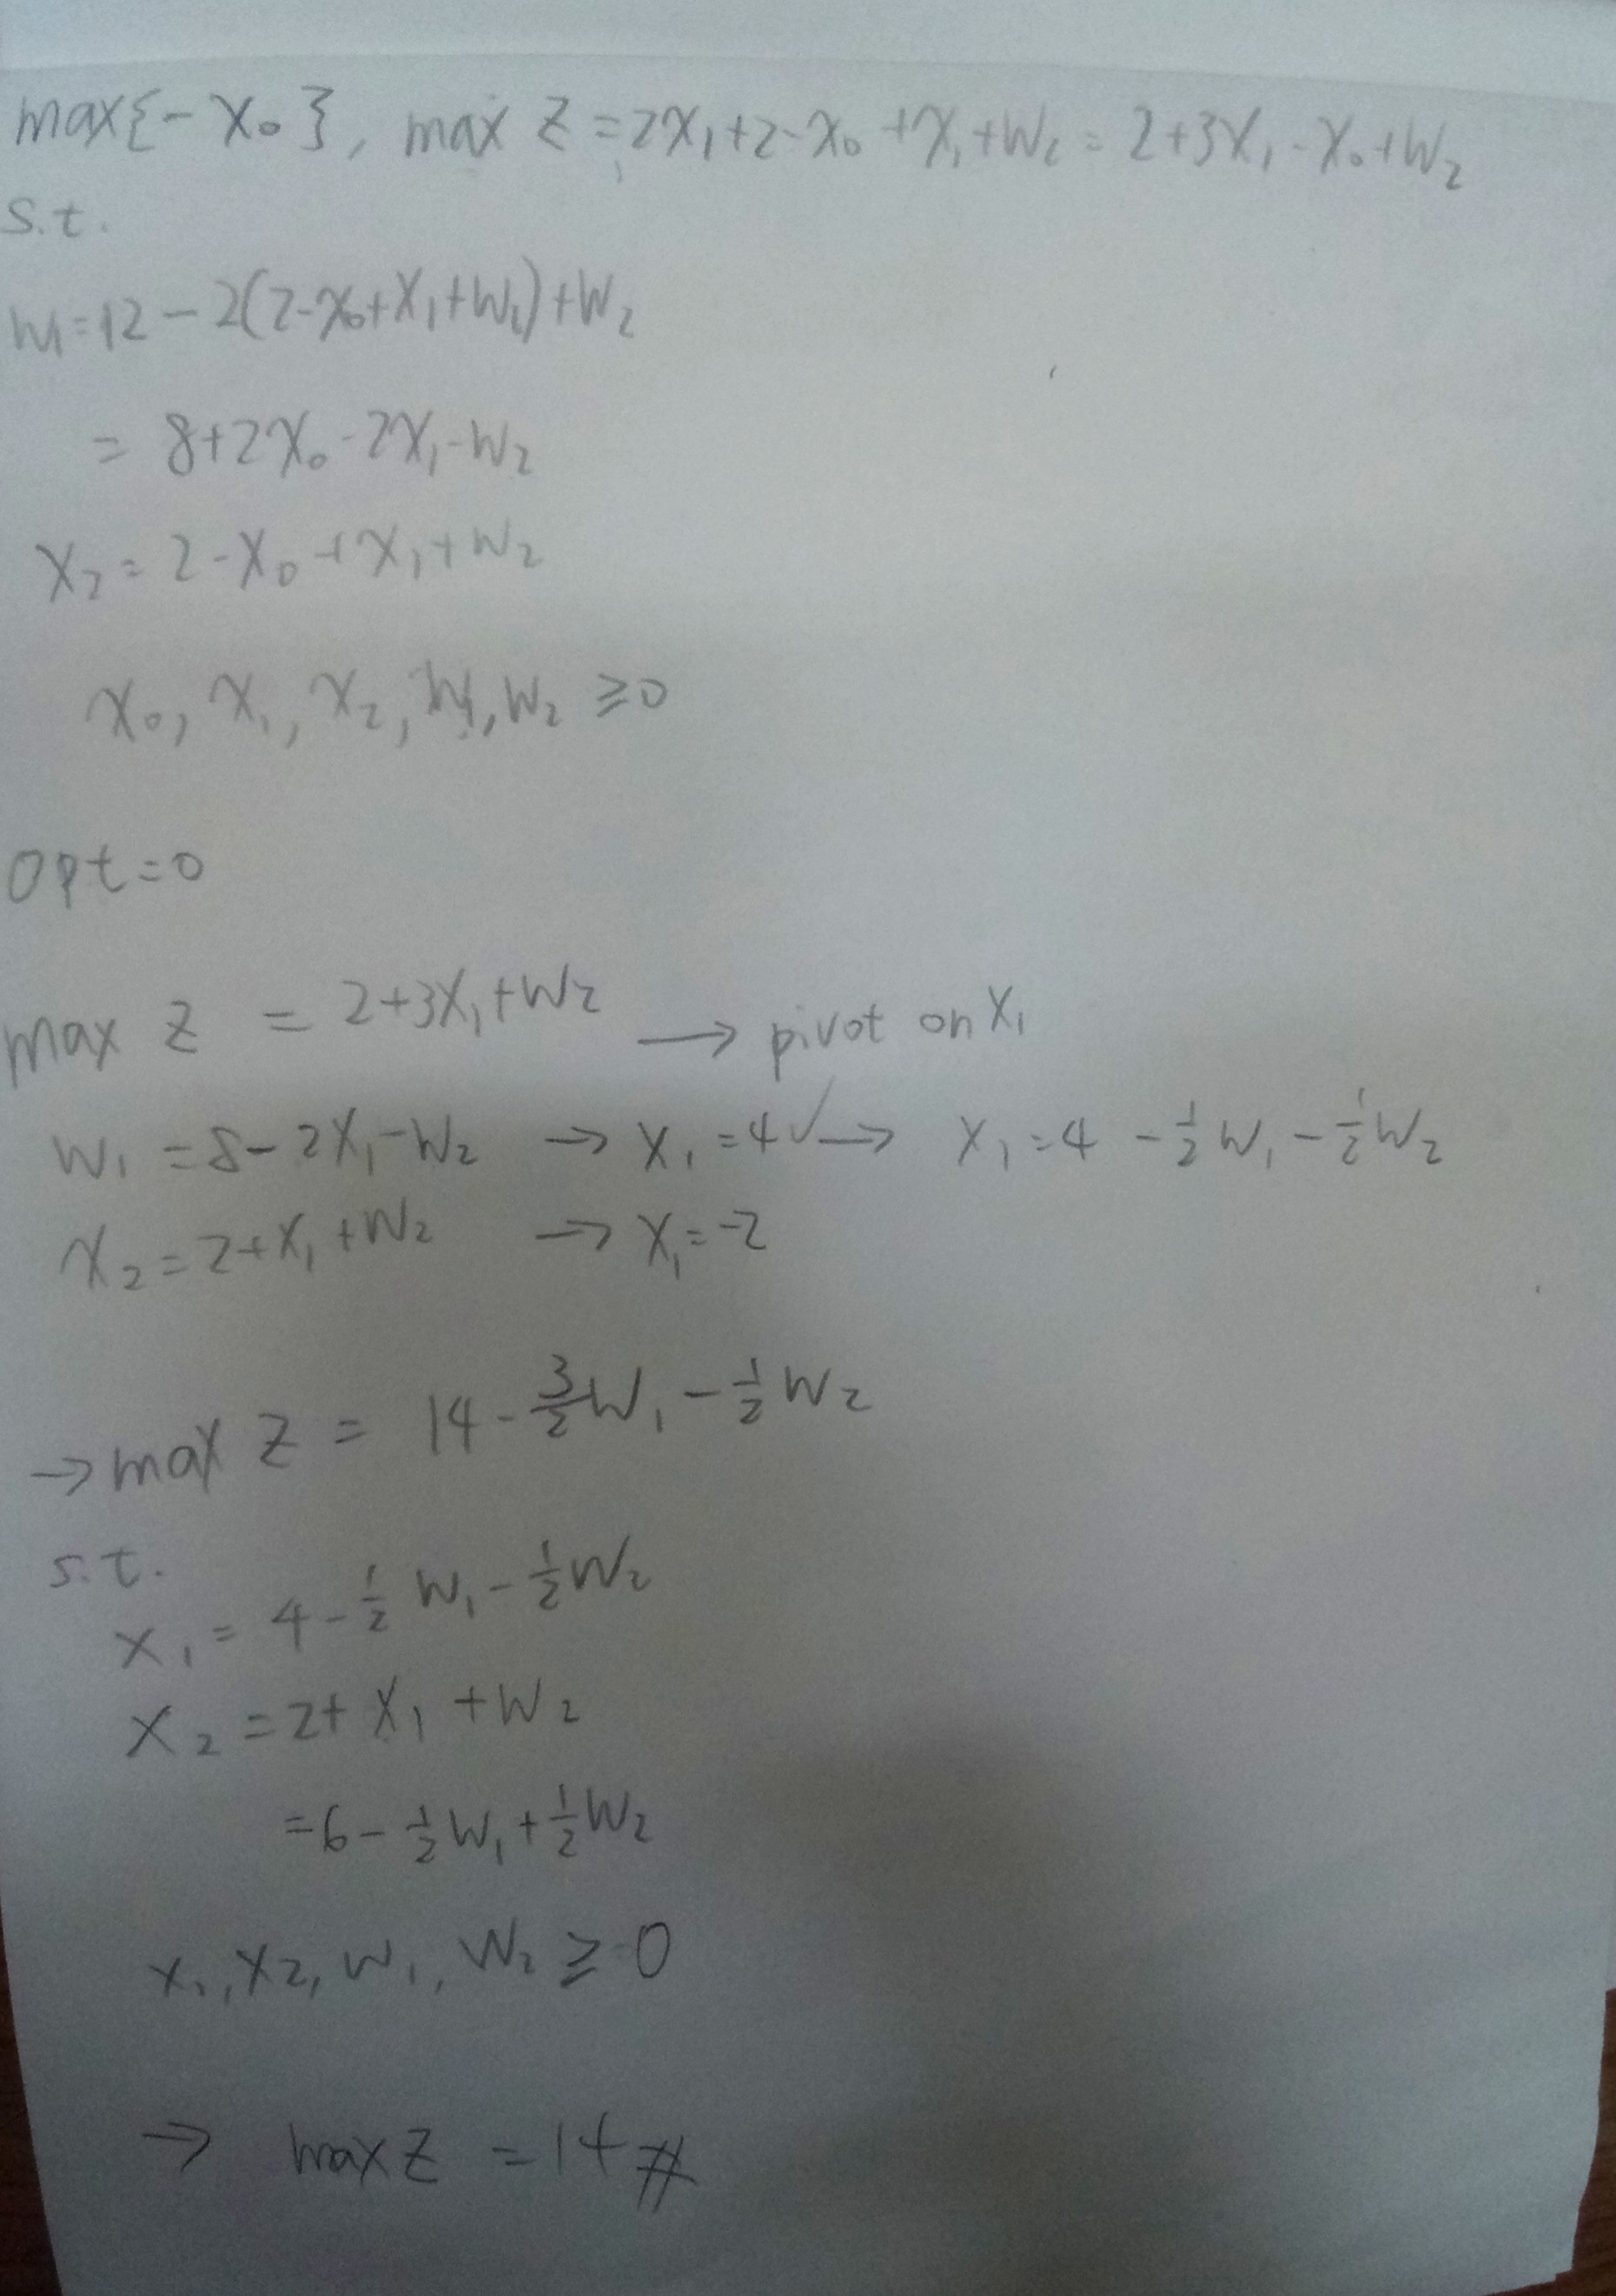 max{-x₀}, max z = 2x₁+2-x₀+x₁+w₂ = 2+3x₁-x₀+w₂
s.t.
w₁=12-2(2-x₀+x₁+w₂)+w₂
= 8+2x₀-2x₁-w₂
x₂=2-x₀+x₁+w₂
x₀, x₁, x₂, w₁, w₂ ≥0
opt=0
max z = 2+3x₁+w₂ → pivot on x₁
w₁=8-2x₁-w₂ → x₁=4✓→ x₁=4-½w₁-½w₂
x₂=2+x₁+w₂ → x₁=-2
→max z = 14-3/2w₁-½w₂
s.t.
x₁=4-½w₁-½w₂
x₂=2+x₁+w₂
=6-½w₁+½w₂
x₁,x₂,w₁,w₂≥0
→ max z =14 #